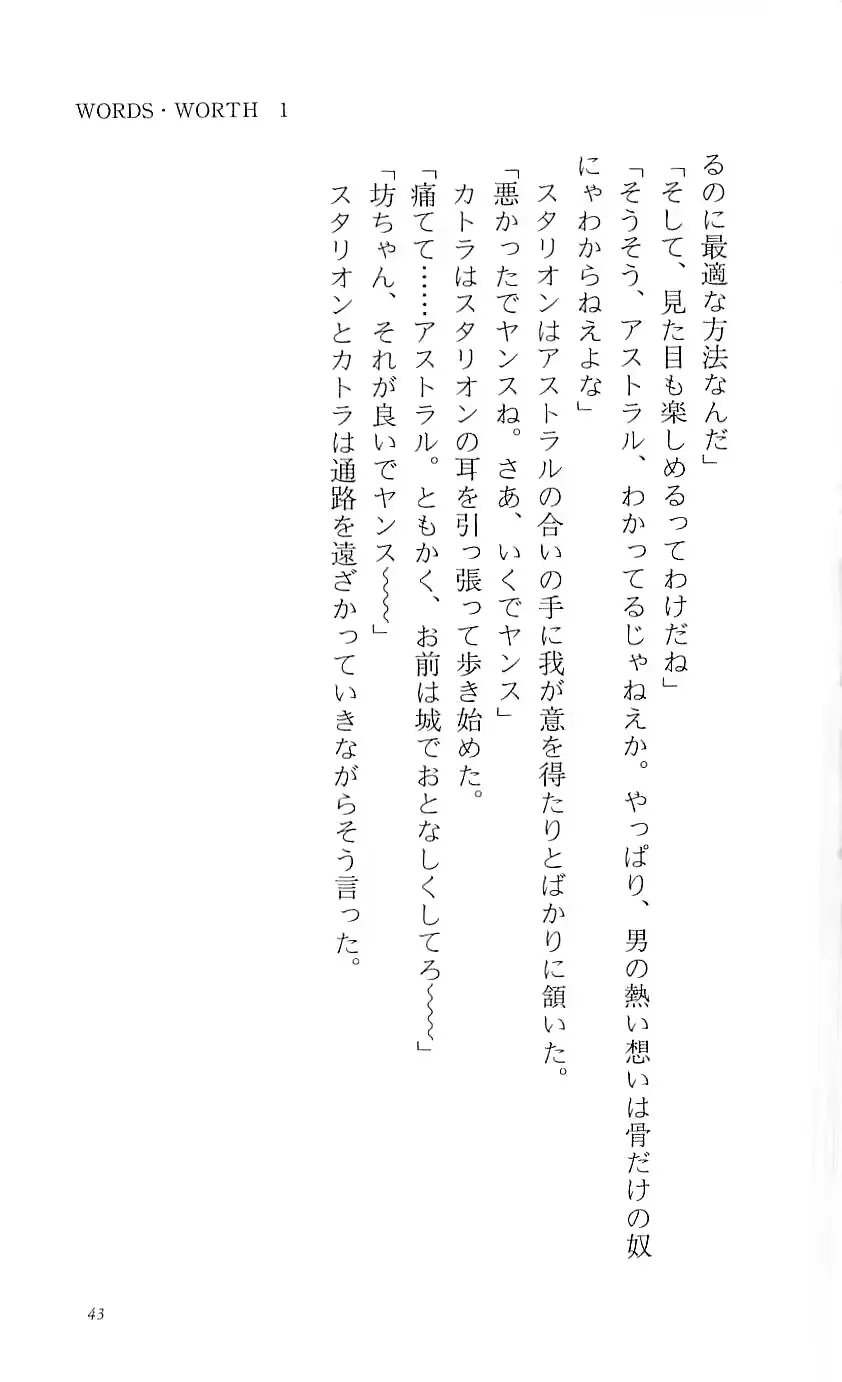 WORDS・WORTH 1
るのに最適な方法なんだ」
「そして、見た目も楽しめるってわけだね」
「そうそう、アストラル、わかってるじゃねえか。やっぱり、男の熱い想いは骨だけの奴
にゃわからねえよな」
スタリオンはアストラルの合いの手に我が意を得たりとばかりに頷いた。
「悪かったでヤンスね。さあ、いくでヤンス」
カトラはスタリオンの耳を引っ張って歩き始めた。
「痛てて……アストラル。ともかく、お前は城でおとなしくしてろ〜〜〜」
「坊ちゃん、それが良いでヤンス〜〜〜」
スタリオンとカトラは通路を遠ざかっていきながらそう言った。
43